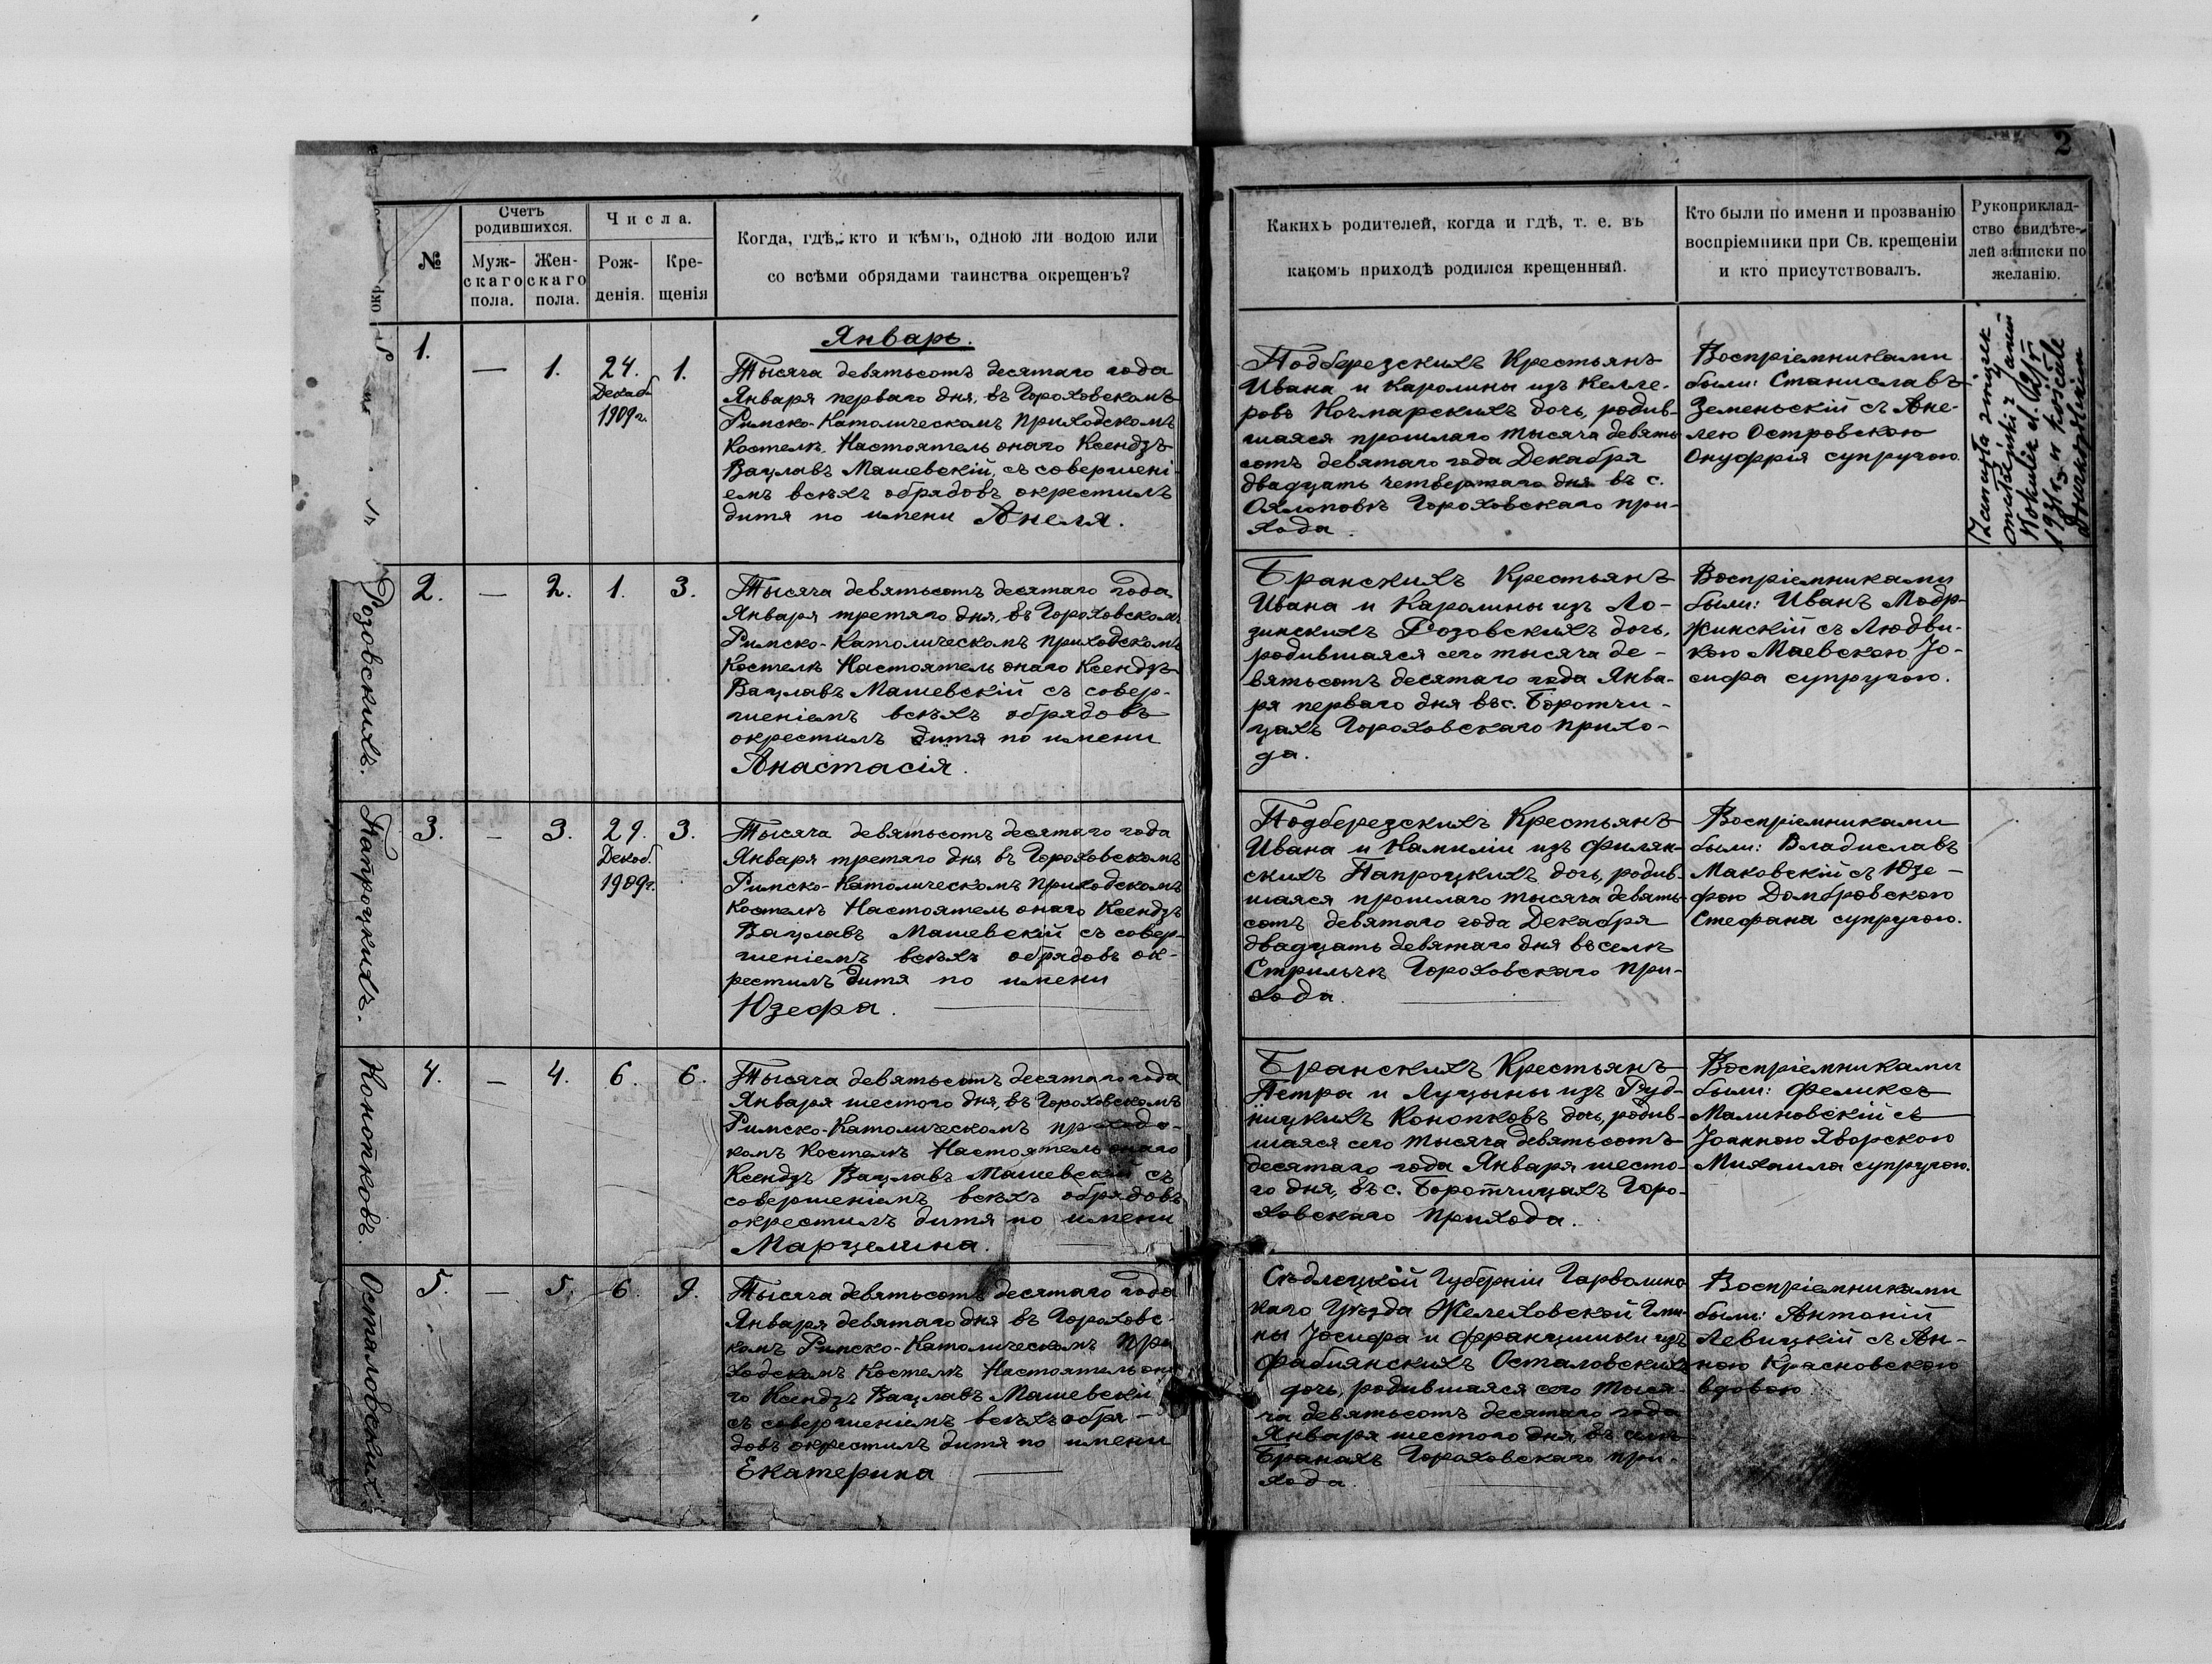 2
№
Счетъ
родившихся.
Муж-
скаго
пола.
Жен-
скаго
пола.
Числа.
Рож-
денія.
Кре-
щенія
Когда, гдѣ, кто и кѣмъ, одною ли водою или
со всѣми обрядами таинства окрещенъ?
Какихъ родителей, когда и гдѣ, т. е. въ
какомъ приходѣ родился крещенный.
Кто были по имени и прозванію
воспріемники при Св. крещеніи
и кто присутствовалъ.
Рукоприклад-
ство свидѣте-
лей записки по
желанію.
1.
—
1.
24.
Декаб.
1909 г.
1.
Январь.
Тысяча девятьсотъ десятаго года
Января перваго дня, въ Гороховскомъ
Римско-Католическомъ Приходскомъ
Костелѣ, Настоятель онаго Ксендзъ
Вацлавъ Машевскій, съ совершені-
емъ всѣхъ обрядовъ окрестилъ
дитя по имени Анеля.
Подберезскихъ Крестьянъ
Ивана и Каролины изъ Келле-
ровъ Кочмарскихъ дочь, родив-
шаяся прошлаго тысяча девять-
сотъ девятаго года Декабря
двадцать четвертаго дня въ с.
Охлоповѣ Гороховскаго при-
хода.
Воспріемниками
были: Станиславъ
Земеньскій съ Ане-
лею Островскою
Онуфрія супругою.
Zawarła związek
małżeński z Janem
1931 r. w kościele
Розовскихъ.
2.
—
2.
1.
3.
Тысяча девятьсотъ десятаго года
Января третяго дня, въ Гороховскомъ
Римско-Католическомъ приходскомъ
Костелѣ Настоятель онаго Ксендзъ
Вацлавъ Машевскій съ совер-
шеніемъ всѣхъ обрядовъ
окрестилъ дитя по имени
Анастасія.
Бранскихъ Крестьянъ
Ивана и Каролины изъ Ло-
зинскихъ Розовскихъ дочь,
родившаяся сего тысяча де-
вятьсотъ десятаго года Янва-
ря перваго дня въ с. Боротчи-
цахъ Гороховскаго прихо-
да.
Воспріемниками
были: Иванъ Модр-
жинскій съ Людви-
кою Маевскою Іо-
сифа супругою.
Папроцкихъ.
3.
—
3.
29.
Декаб.
1909 г.
3.
Тысяча девятьсотъ десятаго года
Января третяго дня въ Гороховскомъ
Римско-Католическомъ Приходскомъ
Костелѣ Настоятель онаго Ксендзъ
Вацлавъ Машевскій съ совер-
шеніемъ всѣхъ обрядовъ ок-
рестилъ дитя по имени
Юзефа.
Подберезскихъ Крестьянъ
Ивана и Камиліи изъ Филян-
скихъ Папроцкихъ дочь, родив-
шаяся прошлаго тысяча девять-
сотъ девятаго года Декабря
двадцать девятаго дня въ селѣ
Стрильчѣ Гороховскаго при-
хода.
Воспріемниками
были: Владиславъ
Маковскій съ Юзе-
фою Домбровскою
Стефана супругою.
Конопковъ.
4.
—
4.
6.
6.
Тысяча девятьсотъ десятаго года
Января шестого дня, въ Гороховскомъ
Римско-Католическомъ приходс-
комъ Костелѣ Настоятель онаго
Ксендзъ Вацлавъ Машевскій съ
совершеніемъ всѣхъ обрядовъ
окрестилъ дитя по имени
Марцелина.
Бранскихъ Крестьянъ
Петра и Луцыны изъ Руд-
ницкихъ Конопковъ дочь, родив-
шаяся сего тысяча девятьсотъ
десятаго года Января шесто-
го дня, въ с. Боротчицахъ Горо-
ховскаго прихода.
Воспріемниками
были: Феликсъ
Малиновскій съ
Іоанною Яворскою
Михаила супругою.
Осталовскихъ
5.
—
5.
6.
9.
Тысяча девятьсотъ десятаго года
Января девятаго дня въ Гороховс-
комъ Римско-Католическомъ При
ходскомъ Костелѣ Настоятель она
го Ксендзъ Вацлавъ Машевскій
съ совершеніемъ всѣхъ обря-
довъ окрестилъ дитя по имени
Екатерина
Сѣдлецкой Губерніи Гарволинс
каго Уѣзда Желеховской Гми-
ны Іосифа и Францишки изъ
Фабиянскихъ Осталовскихъ
дочь, родившаяся сего тыся-
ча девятьсотъ десятаго года
Января шестого дня, въ селѣ
Бранахъ Гороховскаго при-
хода.
Воспріемниками
были: Антоній
Левицкій съ Ан-
ною Красновскою
вдовою